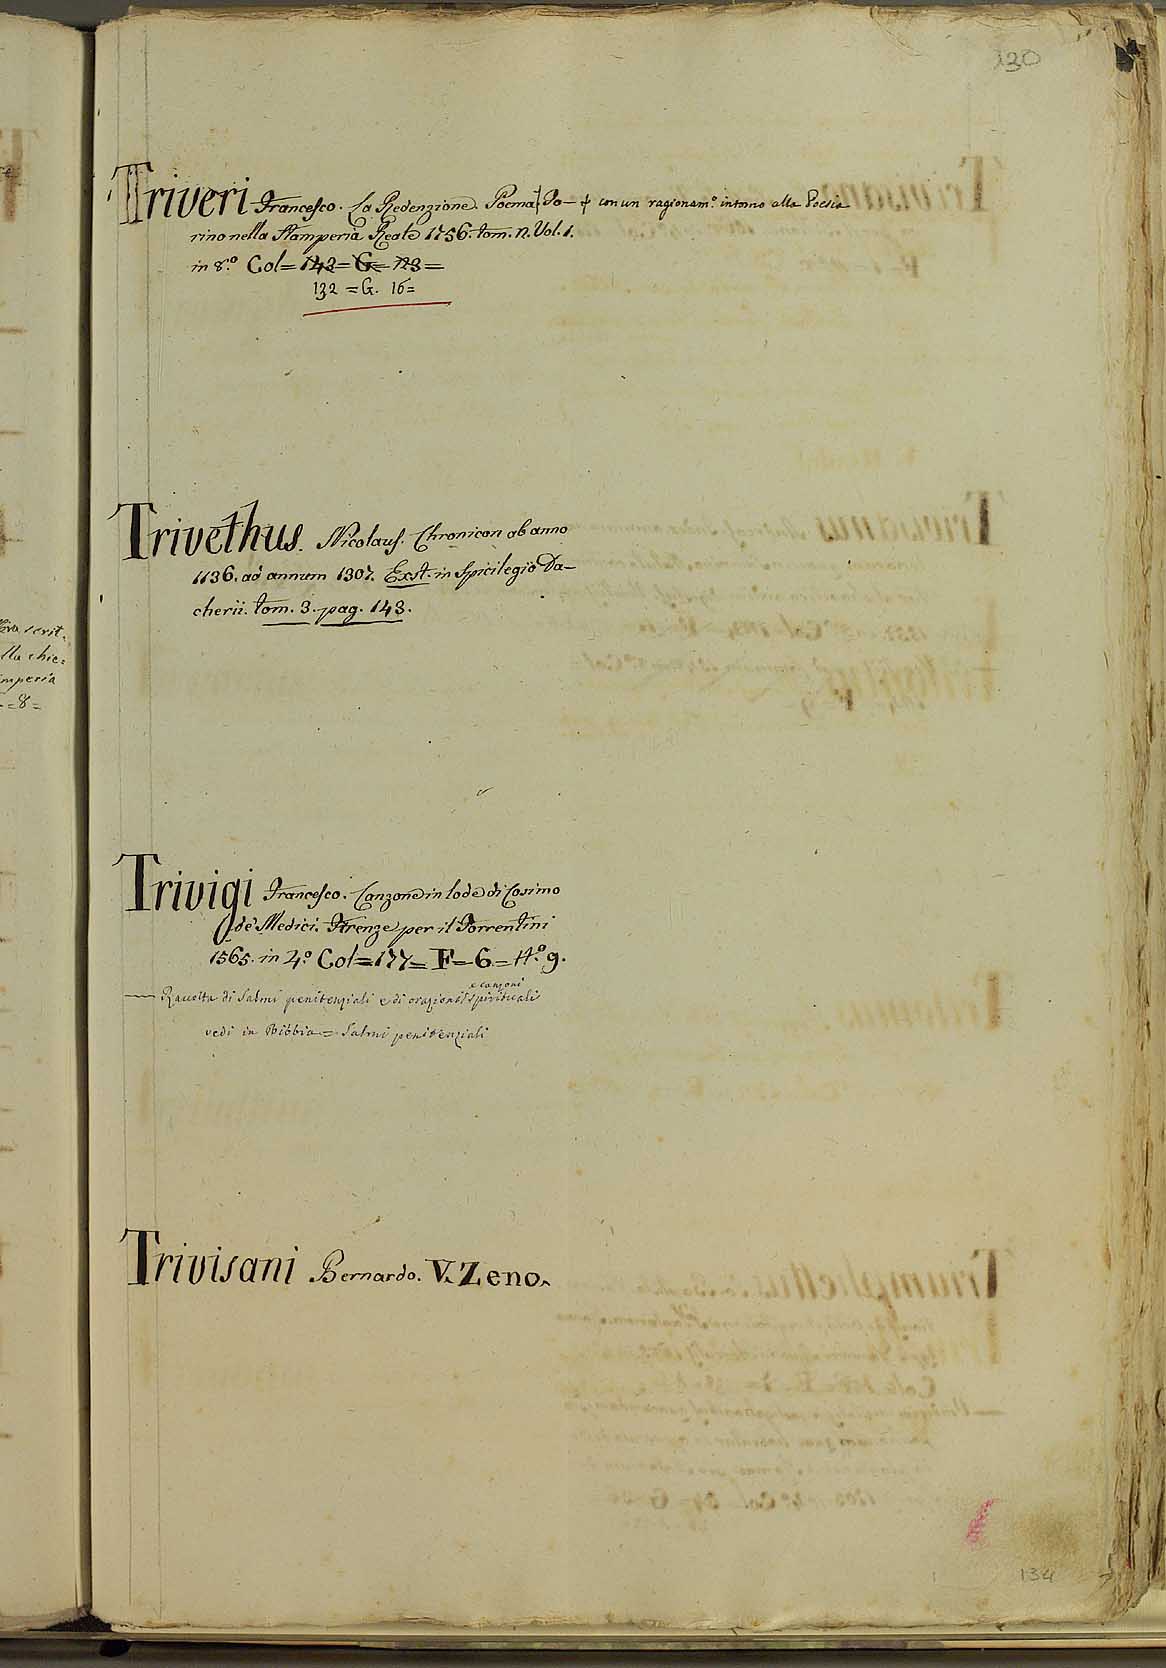 130
Triveri Francesco. La Redenzione. Poema ǂ To- ǂ con un ragionam.º intorno alla Poesia
rino nella Stamperia Reale 1756. tom. n. Vol. 1.
in 8.º Col= 143= G= 123=
132 = G. 16=
Trivethus. Nicolaus. Chronicon ab anno
1136. ad annum 1307. Exst. in Spicilegio Da-
cherii. tom. 3. pag. 143.
Trivigi Francesco. Canzone in lode di Cosimo
de' Medici. Firenze per il Torrentini
1565. in 4.º Col=177= F= 6= Nº. 9.
e canzoni
— Raccolta di Salmi penitenziali e di orazioni spirituali
vedi in Bibbia = Salmi penitenziali
Trivisani Bernardo. V. Zeno.
134
scrit-
lla chie=
mperia
=8=